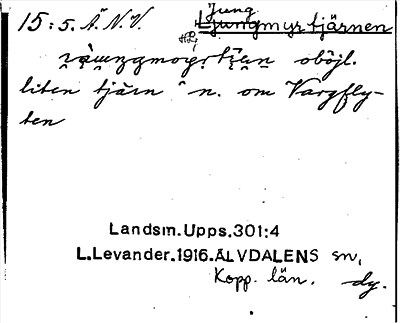 Jung
15:5. Ä. N. V. Ljungmyrtjärnen
oböjl.
liten tjärn n. om Vargfly-
ten
Landsm. Upps. 301:4
L. Levander. 1916. ÄLVDALENS sn,
Kopp. län. dy.